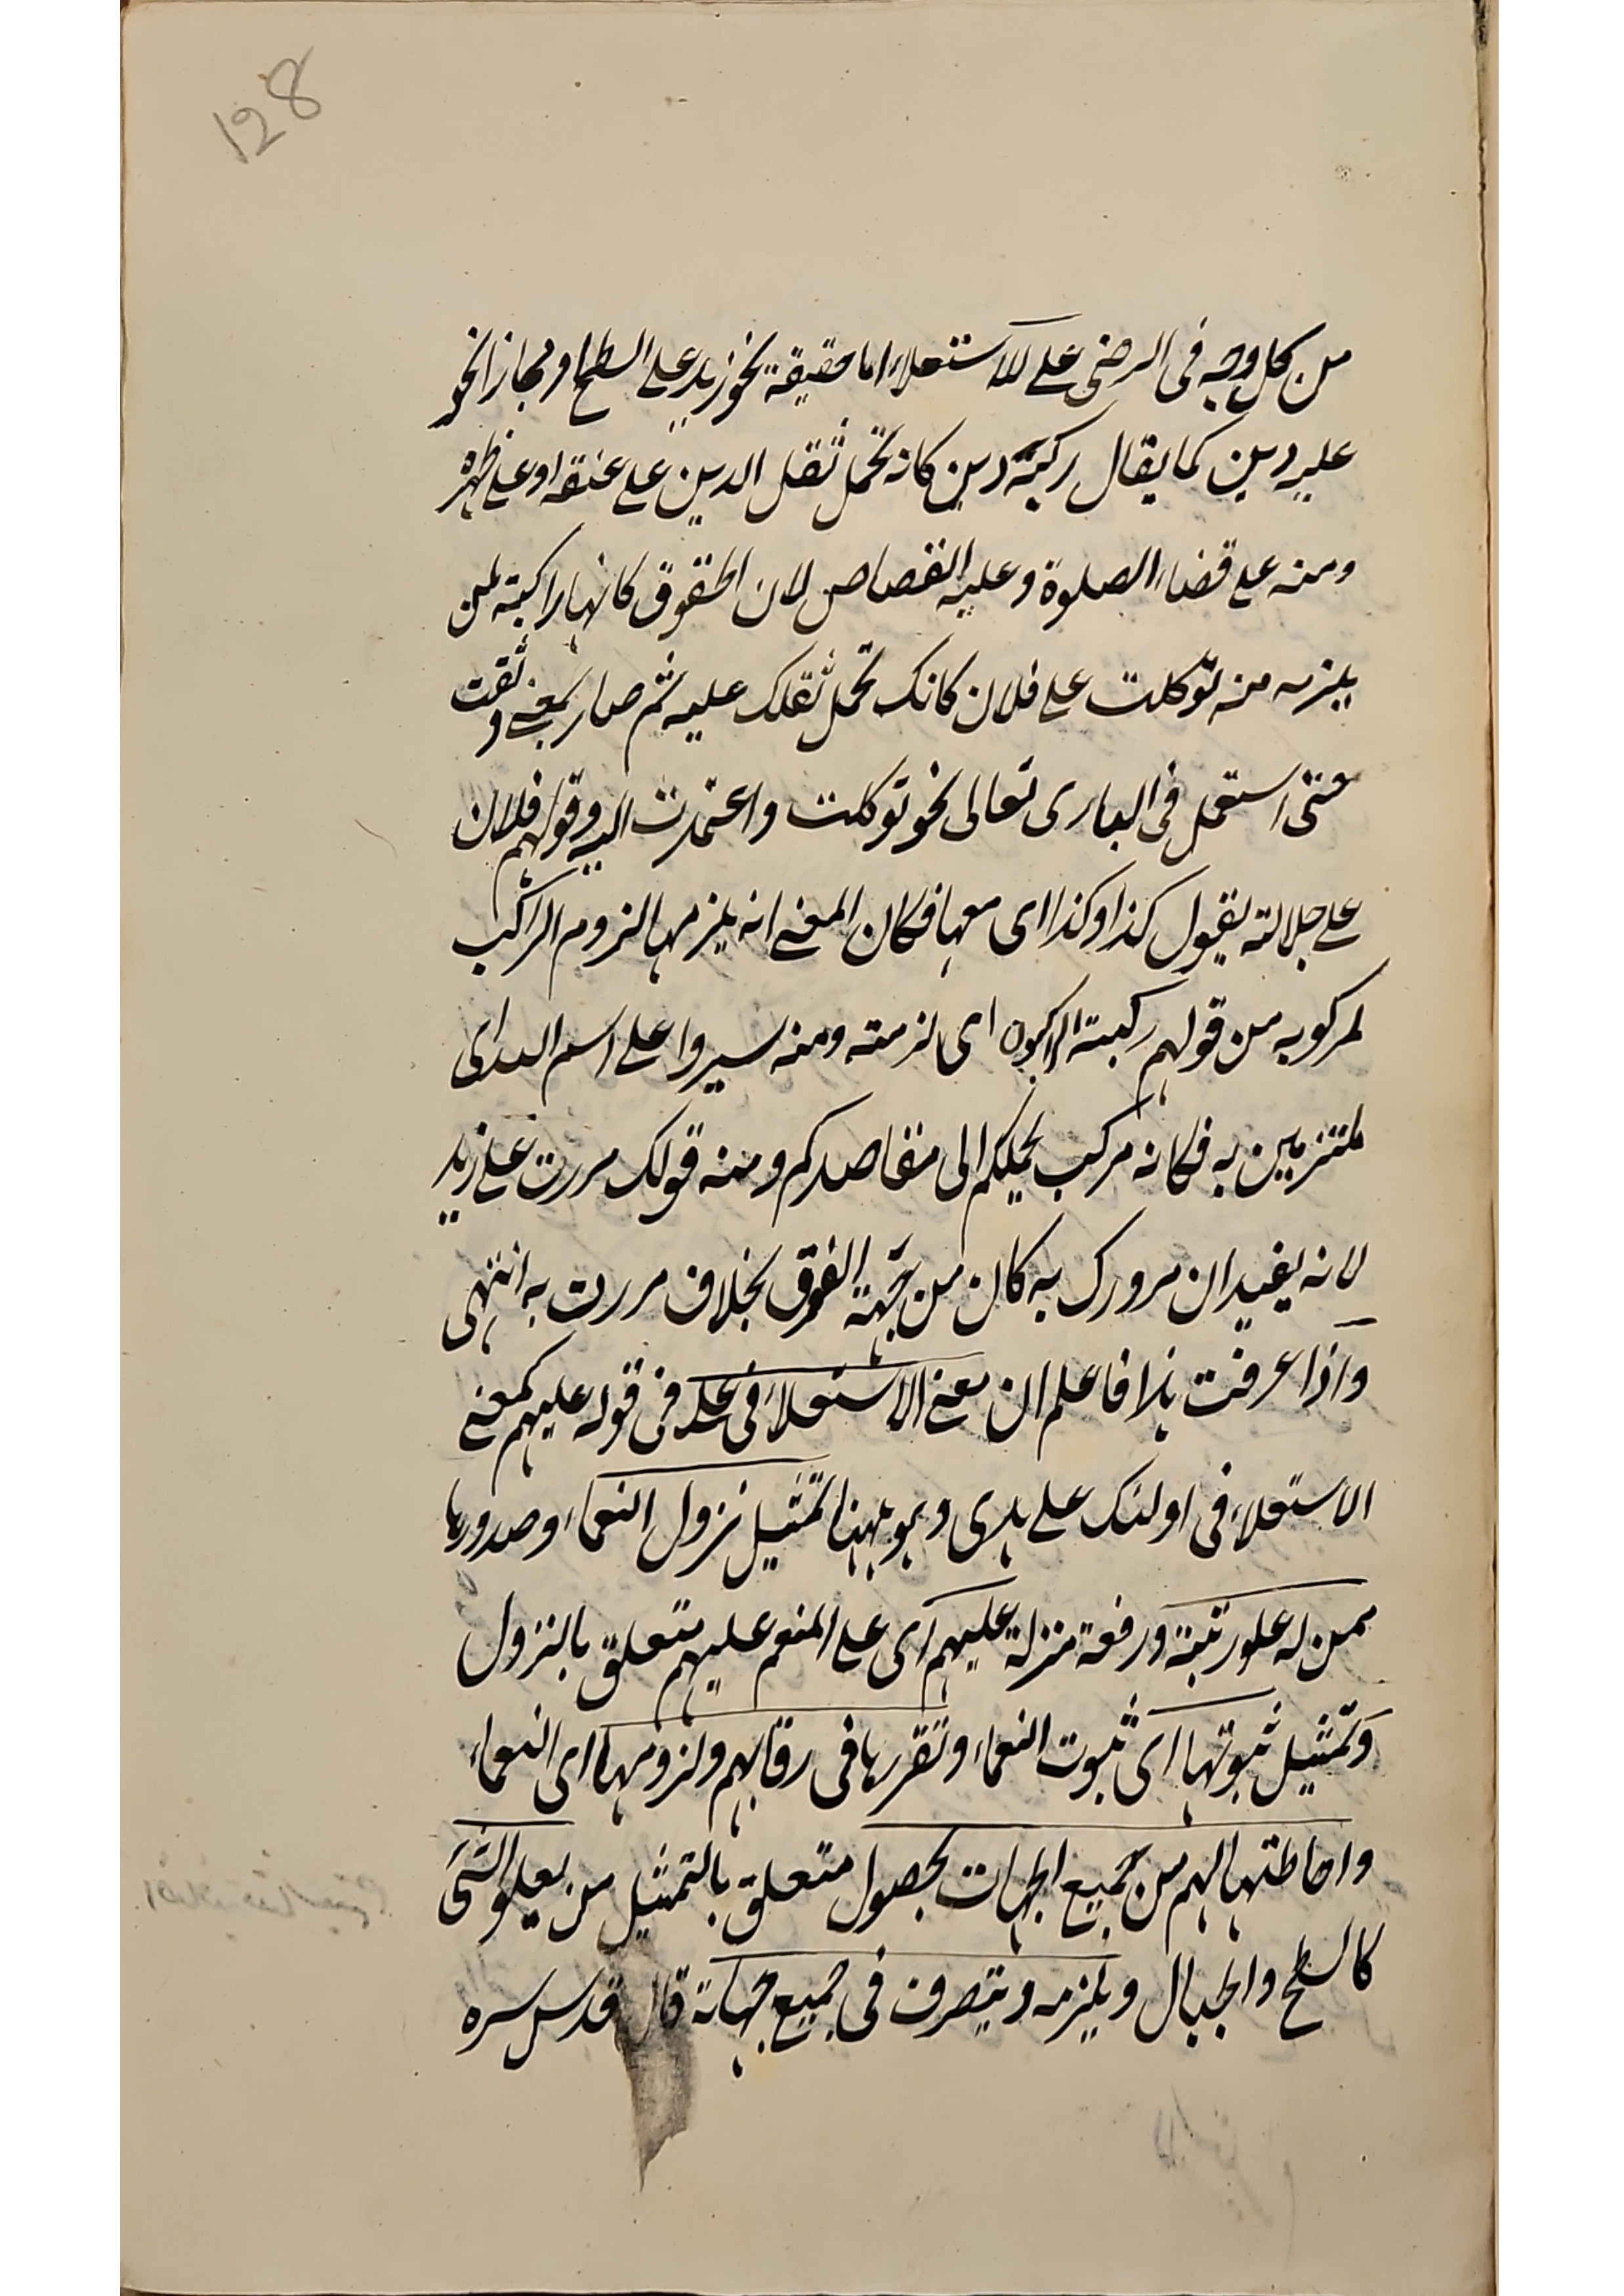 128
من كل وجه فى الرضى على للاستعلاء اما حقيقة نحو زيد على السطح او مجازا نحو
عليه دين كما يقال ركبه دين كانه تحمل ثقل الدين على عنقه او على ظهره
ومنه على قضاء الصلوة وعليه القصاص لان الحقوق كانها راكبة لمن
يلزمه منه توكلت على فلان كانك تحمل ثقلك عليه ثم صار بمعنى وثقت
حتى استعمل فى البارى تعالى نحو توكلت واعتمدت اليه وقولهم فلان
على جلالته يقول كذا وكذا اى معها فكان المعنى انه يلزمها لزوم الراكب
لمركوبه من قولهم ركبته اى لزمته ومنه سيروا على اسم الله اى
ملتزمين به فكانه مركب يحملكم الى مقاصدكم ومنه قولك مررت على زيد
لانه يفيد ان مرورك به كان من جهة الفوق بخلاف مررت به انتهى
واذا عرفت هذا فاعلم ان معنى الاستعلاء فى على فى قوله عليهم كمعنى
الاستعلاء فى اولئك على هدى وهو ههنا تمثيل نزول النعماء وصدورها
ممن له علو رتبة ورفعة منزلة عليهم اى على المنعم عليهم متعلق بالنزول
وتمثيل ثبوتها اى ثبوت النعماء وتقررها فى رقابهم ولزومها اى النعماء
واحاطتها لهم من جميع الجهات بحصول متعلق بالتمثيل من يعلو الشئ
كالسطح والجبال ويلزمه ويتصرف فى جميع جهاته قال قدس سره